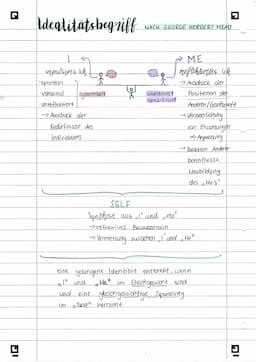 Identitätsbegriff NACH GEORGE HERBERT MEAD
I
ME
- spontan
- unreflektiert
→ Ausdruck der
Bedürfnisse des
Individuums
→ Ausdruck der
Positionen der
Anderen/Gesellschaft
→ Verinnerlichung
von Erwartungen
→ Anpassung
→ Reaktion Anderer
beeinflusst
Neubildung
des "Me's"
SELF
Synthese aus "I" und "me"
→ reflexives Bewusstsein
→ Vermittlung zwischen "I" und "Me"
eine gelungene Identität entsteht, wenn
"I" und "Me" im Gleichgewicht sind
und eine gleichgewichtige Spannung
im "Self" herrscht